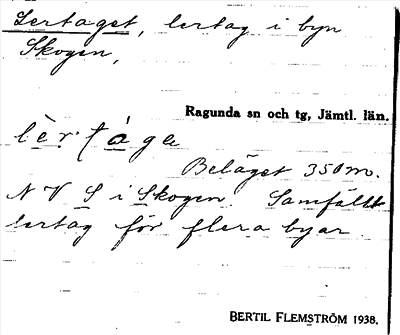 Lertaget, lertag i byn
Skogen,
Ragunda sn och tg, Jämtl. län.
lè̱r.tá̱ge
Beläget 350 m.
N V S i Skogen. Samfällt
lertag för flera byar.
BERTIL FLEMSTRÖM 1938.